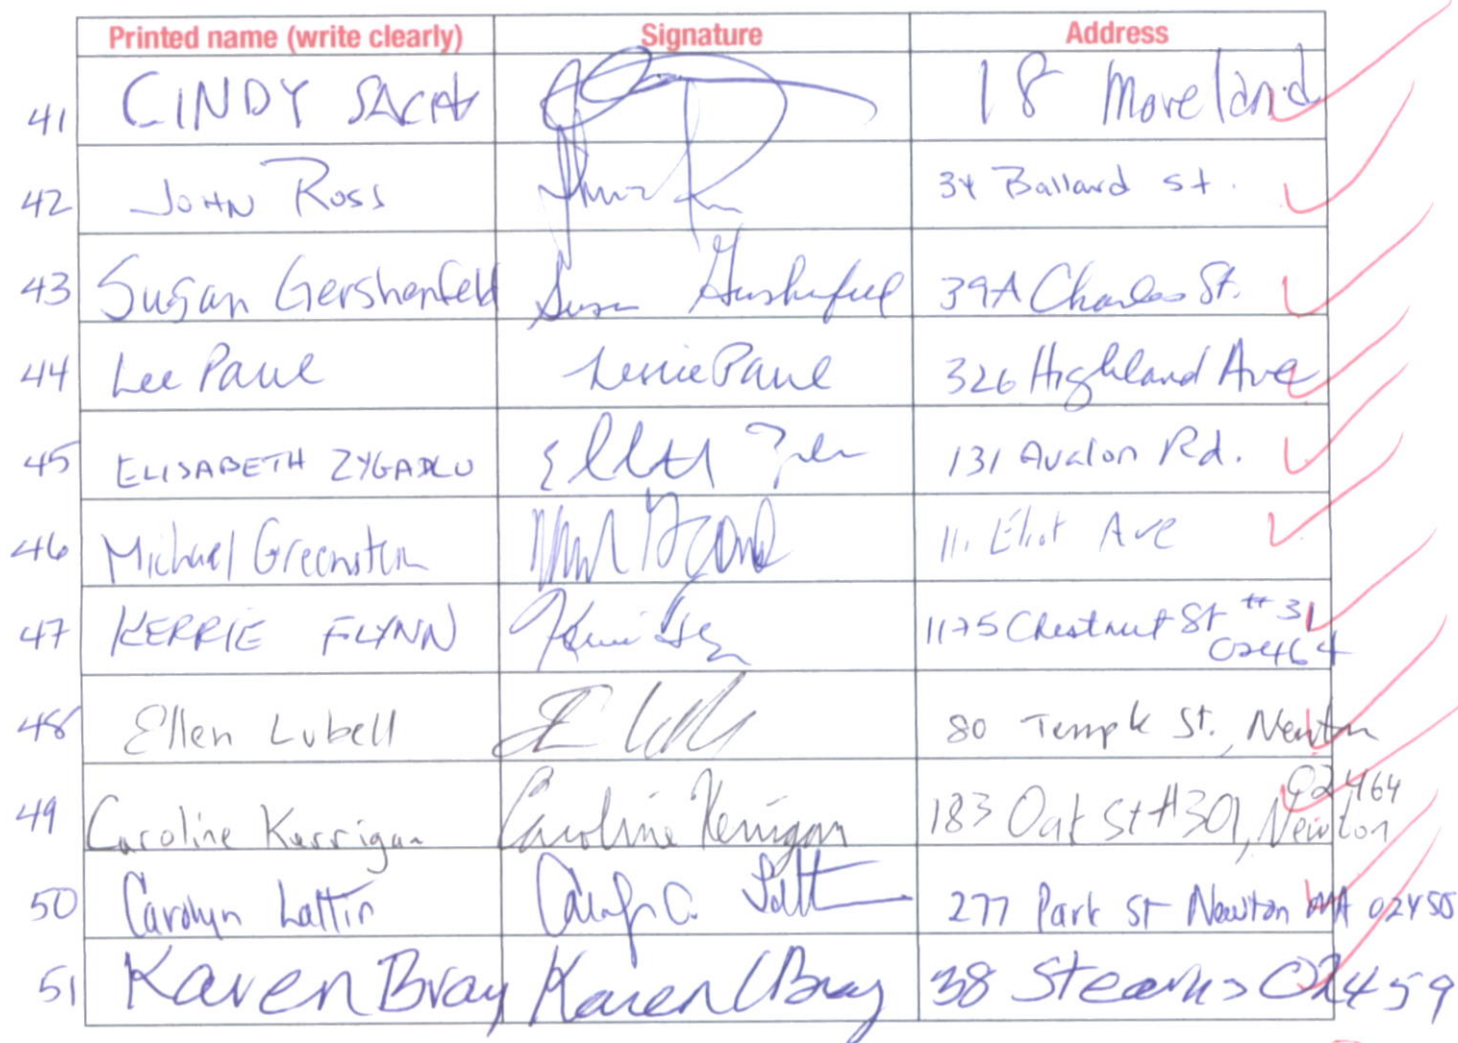 Printed name (write clearly) Signature Address
41 CINDY 18 Moreland
42 JOHN ROSS 34 Ballard St.
43 Susan Gershenfeld Susan Gershenfeld 39A Charles St.
44 Lee Paul Leslie Paul 326 Highland Ave
45 ELISABETH ZYGADLO 131 Avalon Rd.
46 Michael Greenstein 11 Eliot Ave
47 KERRIE FLYNN 1175 Chestnut St #31
02464
48 Ellen Lubell 80 Temple St., Newton
49 Caroline Kerrigan Caroline Kerrigan 183 Oak St #301, Newton
02464
50 Carolyn Lattin 277 Park St Newton MA
51 Karen Bray Karen Bray 38 Stearns 02459